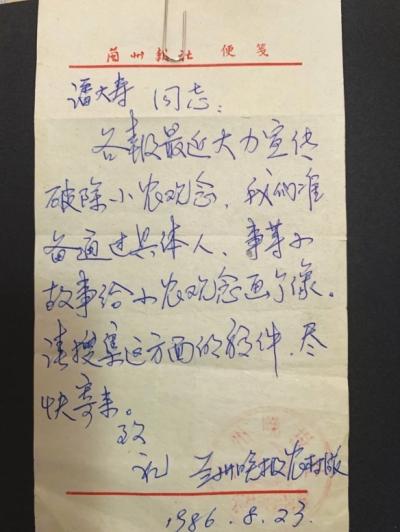 兰州报社 便笺
潘大寿 同志:
各报最近大力宣传
破除小农观念,我们准
备通过具体人、事等小
故事给小农观念画个像。
请搜集这方面的稿件,尽
快寄来。
致
礼 兰州晚报农村版
1986.8.23